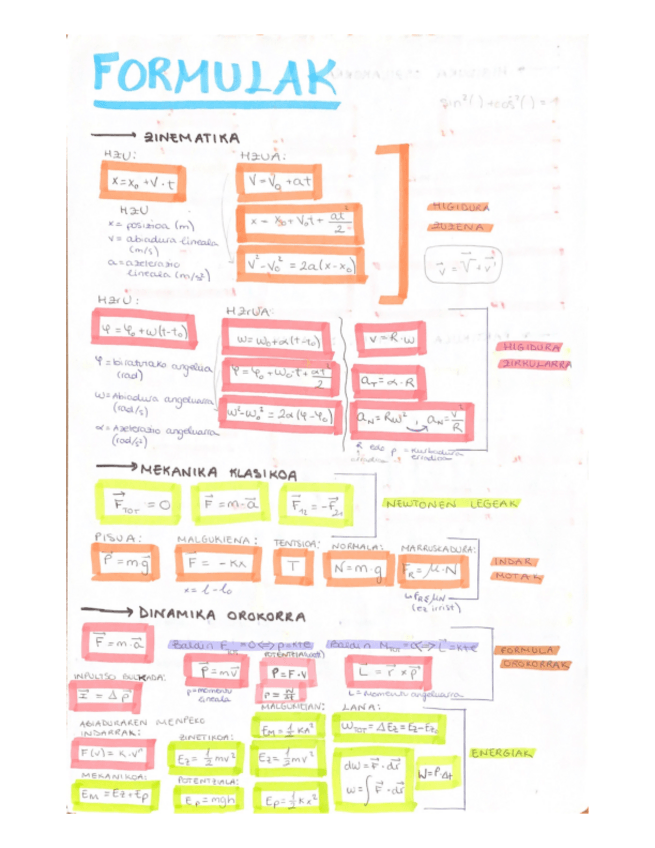 FORMULAK
→ ZINEMATIKA
HZU:
x = x₀ + v · t
HZU
x = posizioa (m)
v = abiadura lineala (m/s)
a = azelerazio lineala (m/s²)
HZUA:
v = v₀ + at
x = x₀ + v₀t + at²/2
v² - v₀² = 2a(x - x₀)
HIGIDURA
ZUZENA
HZrU:
φ = φ₀ + ω(t - t₀)
φ = biratutako angelua (rad)
ω = Abiadura angeluarra (rad/s)
α = Azelerazio angeluarra (rad/s²)
HZrUA:
ω = ω₀ + α(t - t₀)
φ = φ₀ + ω₀ · t + αt²/2
ω² - ω₀² = 2α(φ - φ₀)
v = R · ω
a_T = α · R
a_N = Rω², a_N = v²/R
R edo ρ = kurbadura
HIGIDURA
ZIRKULARRA
→ MEKANIKA KLASIKOA
F⃗_TOT = 0
F⃗ = m · a⃗
F⃗₁₂ = -F⃗₂₁
NEWTONEN LEGEAK
PISUA:
P⃗ = mg⃗
MALGUKIENA:
F⃗ = -kx
x = l - l₀
TENTSIOA:
T
NORMALA:
N = m · g
MARRUSKADURA:
F_R = μ · N
F_R ≤ μN
(ez irrist)
INDAR
MOTAK
→ DINAMIKA OROKORRA
F⃗ = m · a⃗
Baldin F_TOT = 0 ⇔ p = kte
Baldin N_TOT = 0 ⇔ L⃗ = kte
P⃗ = mv⃗
p = momentu lineala
P = F · v
P = W/t
L⃗ = r⃗ × p⃗
L = Momentu angeluarra
FORMULA
OROKORRAK
INPULTSO BULKADA:
I⃗ = Δp⃗
ABIADURAREN MENPEKO
INDARRAK:
F(v) = k · vⁿ
MEKANIKOA:
E_M = E_Z + E_P
ZINETIKOA:
E_Z = 1/2 mv²
POTENTZIALA:
E_P = mgh
MALGUKIAN:
E_M = 1/2 kA²
E_Z = 1/2 mv²
E_P = 1/2 kx²
LANA:
W_TOT = ΔE_Z = E_Z - E_Z₀
dW = F⃗ · dr⃗
W = ∫ F⃗ · dr⃗
W = P · Δt
ENERGIAK